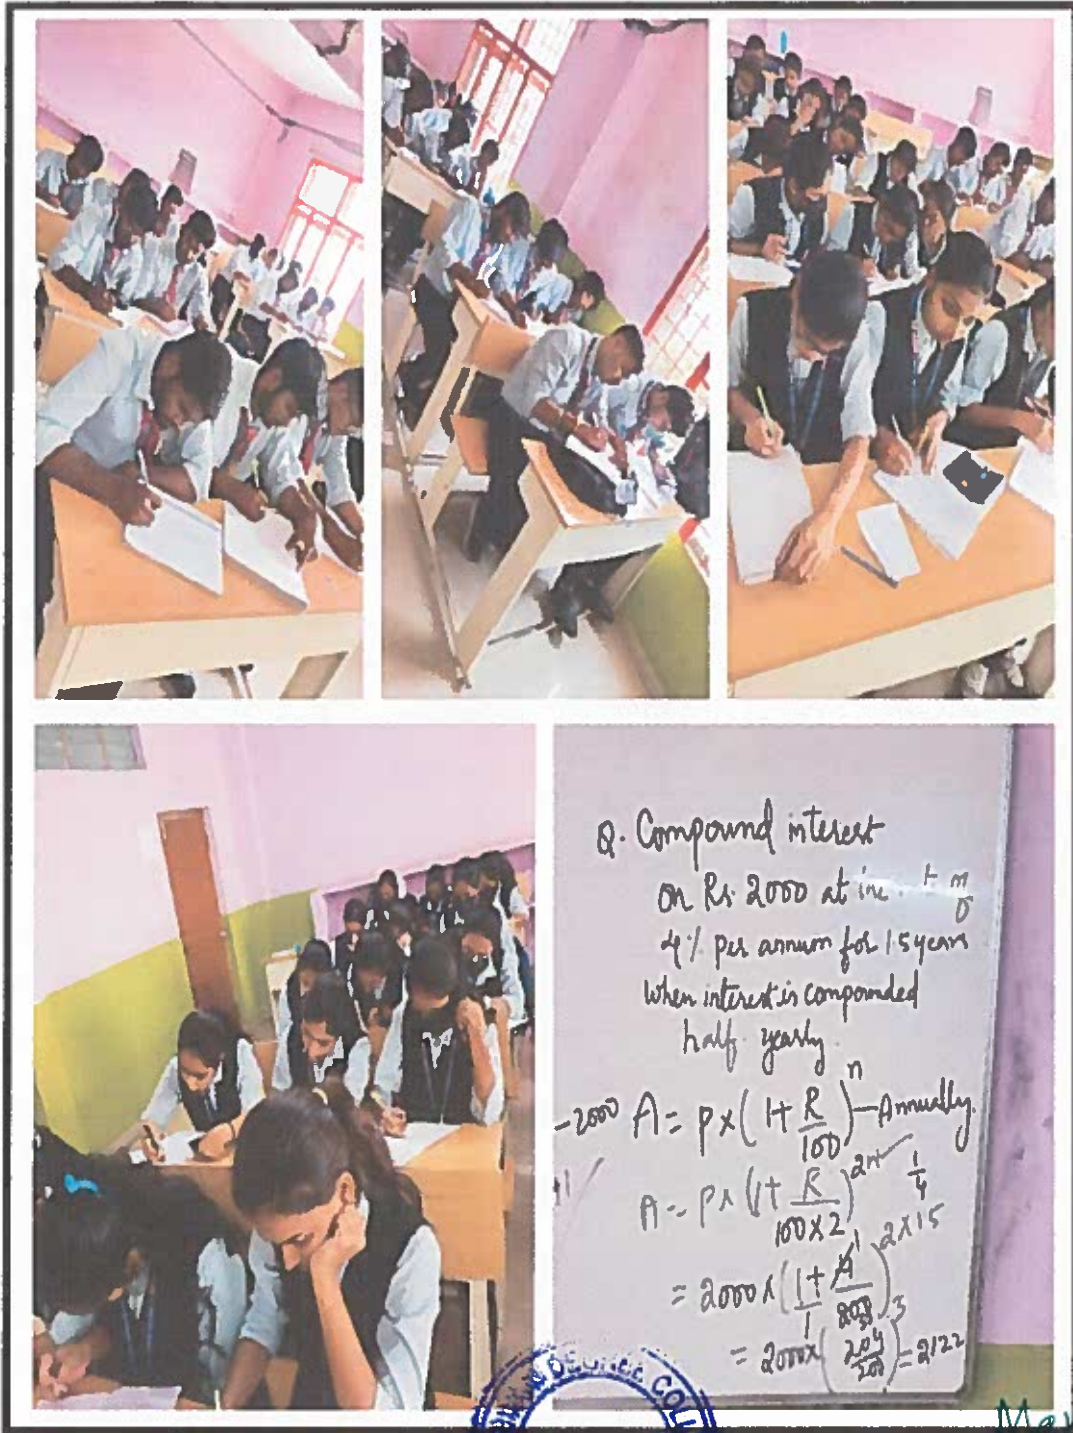 Q. Compound interest
on Rs. 2000 at
4% per annum for 1.5 years
When interest is compounded
half yearly.
-2000 A = P × (1 + R/100)^n — Annually.
A = P × (1 + R/(100×2))^2n ✓ 1/4
= 2000 × (1/1 + 4/200)^2×1.5
= 2000 × (204/200)^3 = 2122
DEGREE COLL